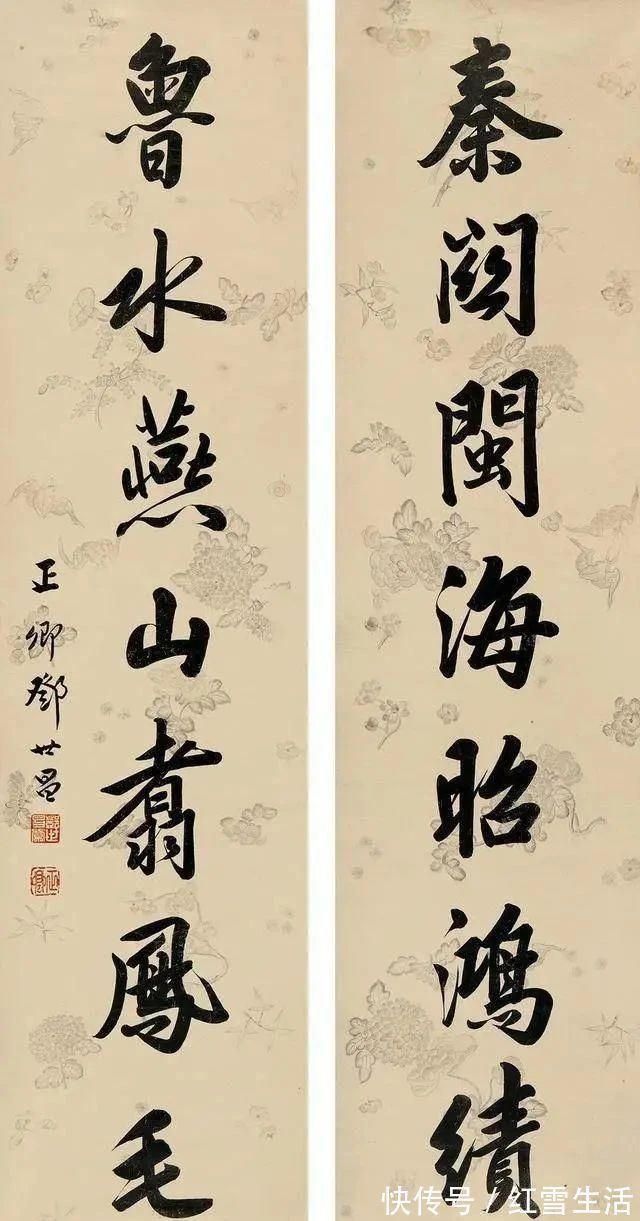 秦關閩海昭鴻績
魯水燕山翥鳳毛
正卿鄧世昌
快传号/红雪生活